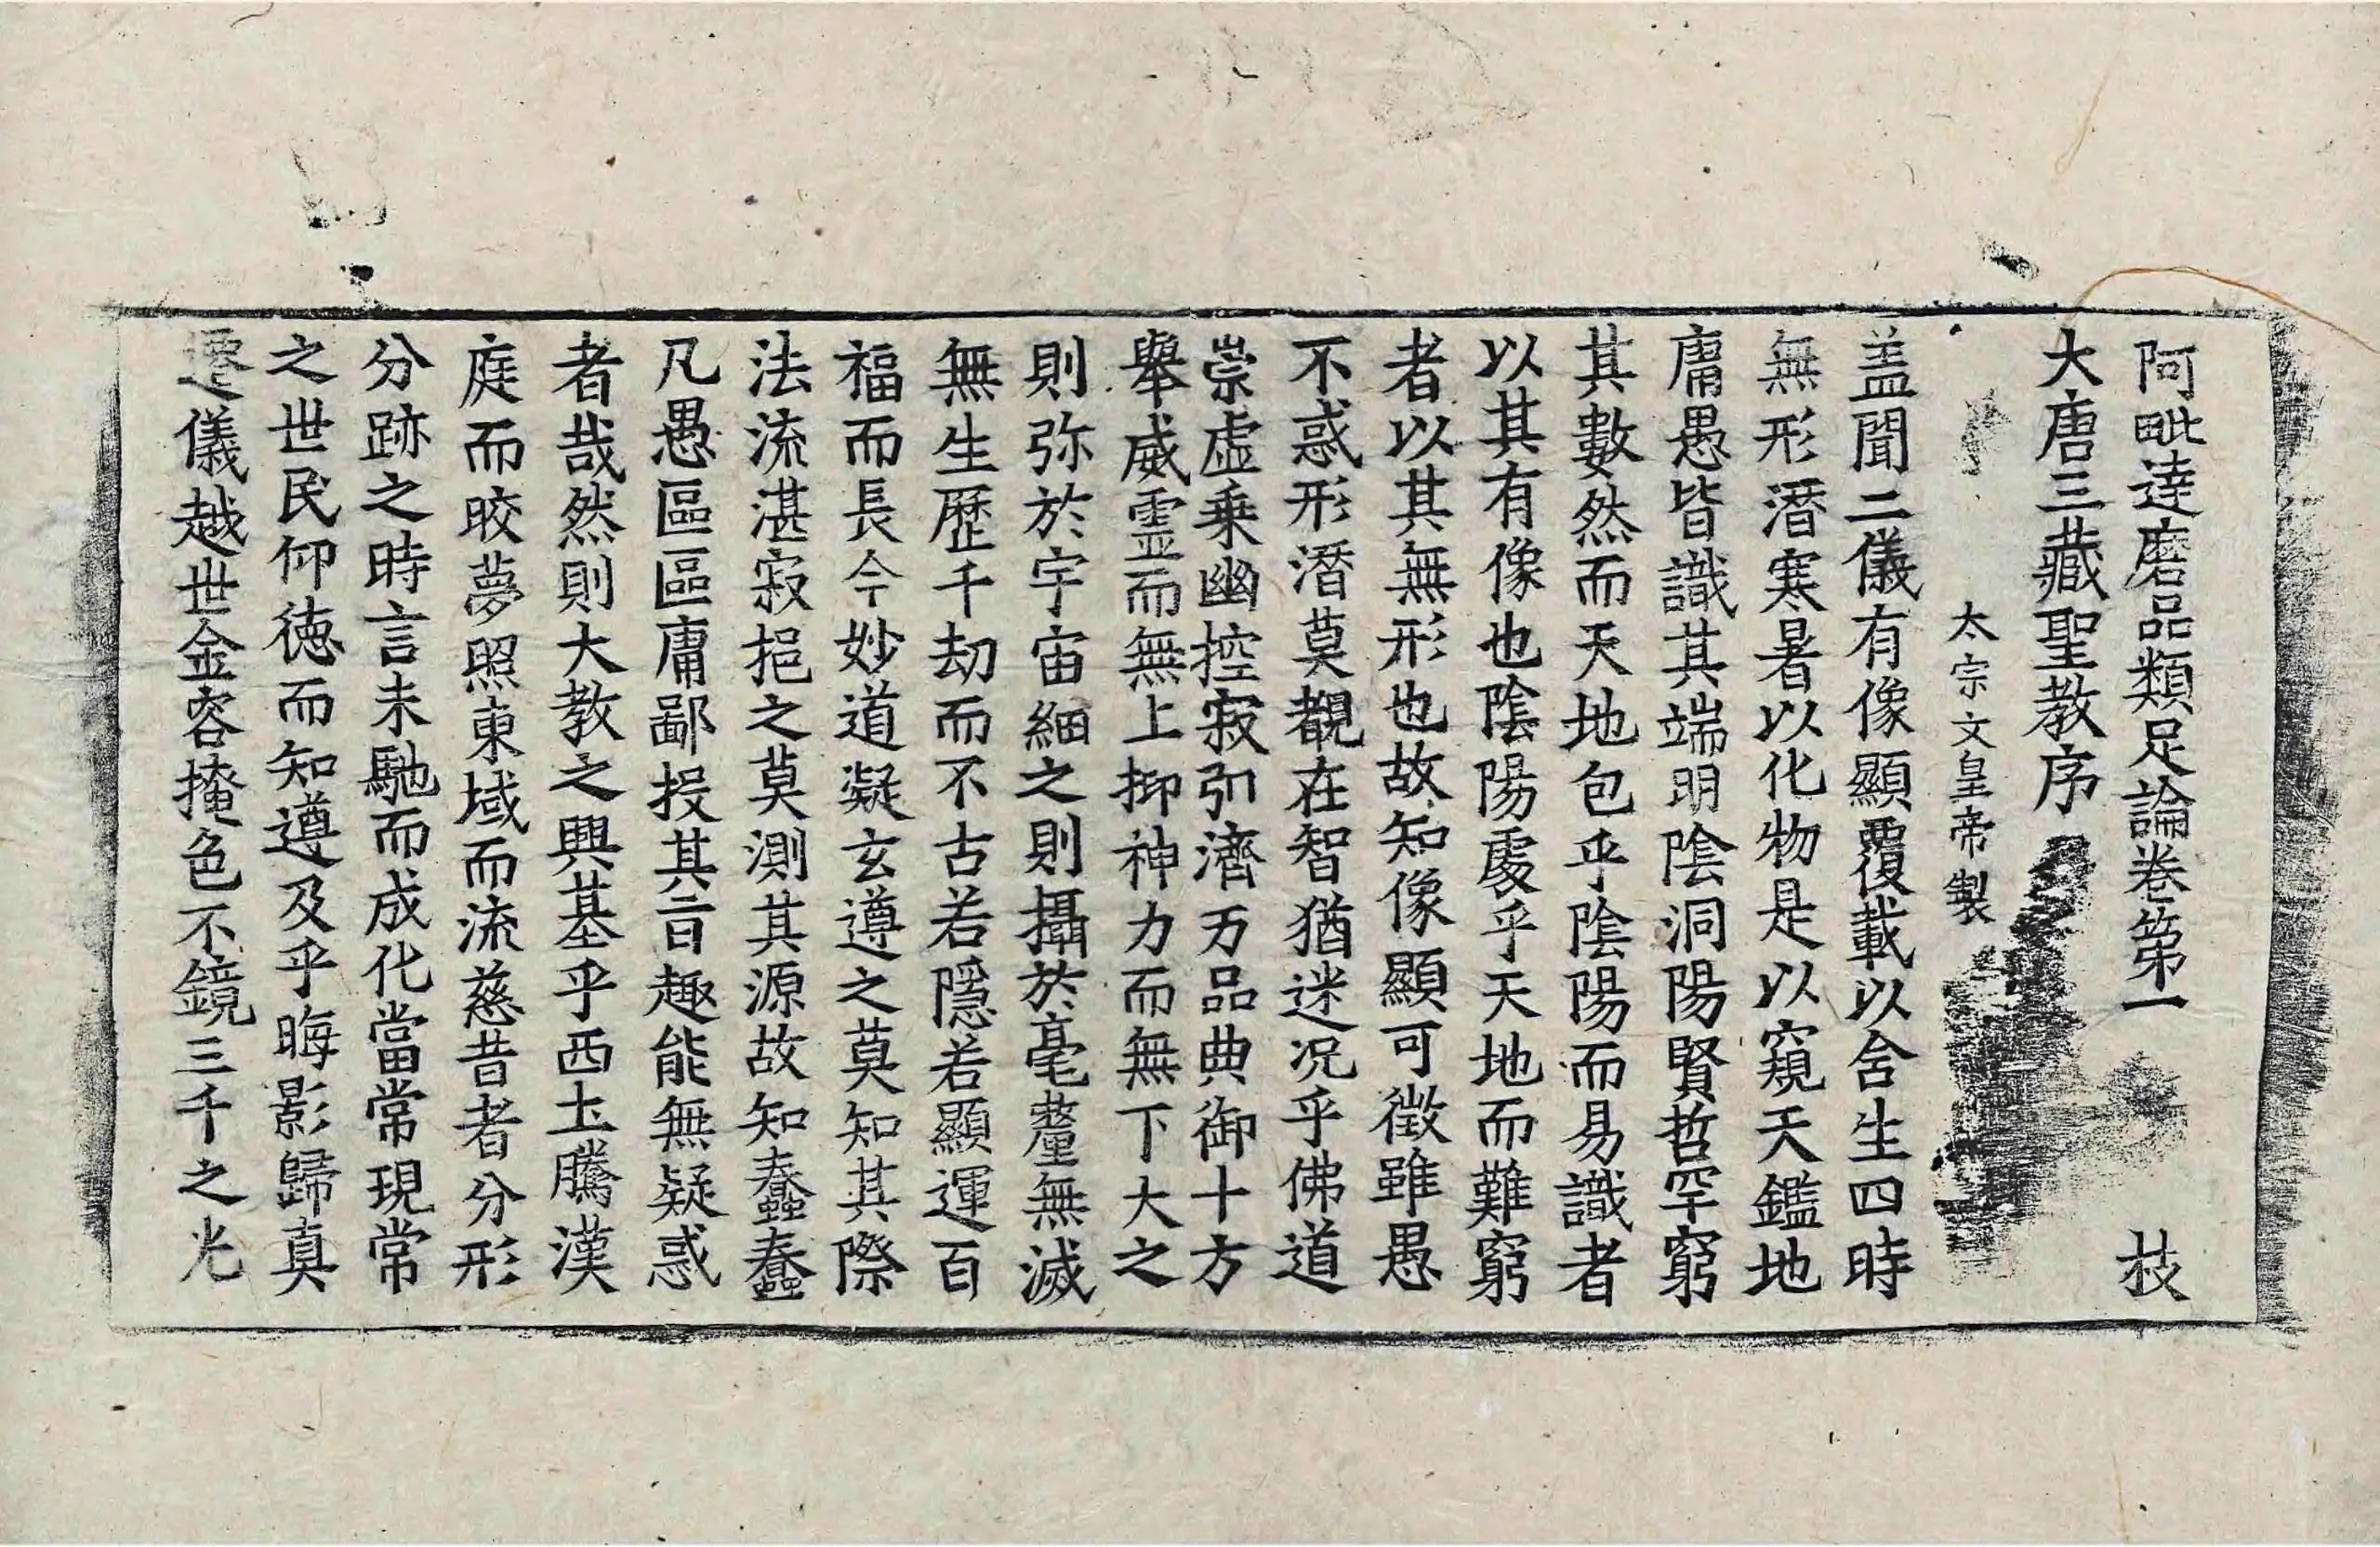 阿毗達磨品類足論卷第一 技
大唐三藏聖教序
太宗文皇帝製
盖聞二儀有像顯覆載以含生四時
無形潛寒暑以化物是以窺天鑑地
庸愚皆識其端明陰洞陽賢哲罕窮
其數然而天地包乎陰陽而易識者
以其有像也陰陽處乎天地而難窮
者以其無形也故知像顯可徵雖愚
不惑形潛莫覩在智猶迷况乎佛道
崇虛乗幽控寂引濟万品典御十方
舉威霊而無上抑神力而無下大之
則弥於宇宙細之則攝於毫釐無滅
無生歷千劫而不古若隱若顯運百
福而長今妙道凝玄遵之莫知其際
法流湛寂挹之莫測其源故知蠢蠢
凡愚區區庸鄙投其旨趣能無疑惑
者哉然則大教之興基乎西土騰漢
庭而皎夢照東域而流慈昔者分形
分跡之時言未馳而成化當常現常
之世民仰德而知遵及乎晦影歸真
遷儀越世金容掩色不鏡三千之光